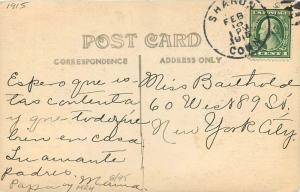 1915
SHARON
FEB
CONN.
POST CARD
CORRESPONDENCE
ADDRESS ONLY
Espero que es-
tas contenta
y que todo sigue
bien en casa.
Tu amante
padres.
Papa y Mama.
Miss Baithold
60 West 89 St.
New York City.